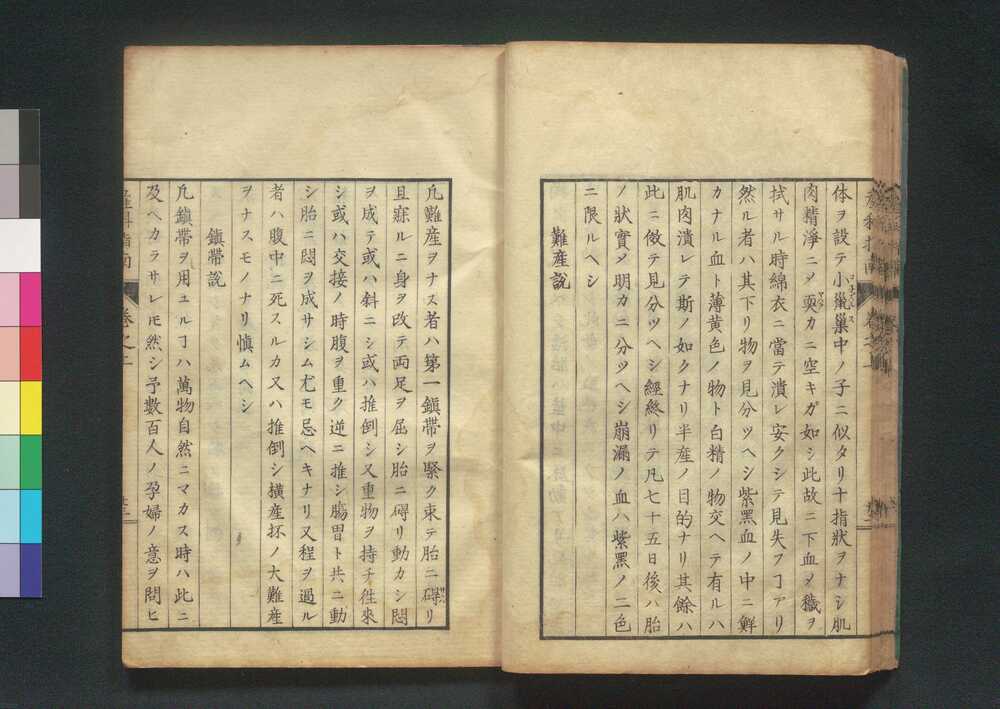 体ヲ設テ小蛓巢中ノ子ニ似タリ十指狀ヲナシ肌
肉精淨ニ〆耎カニ空キガ如シ此故ニ下血〆穢ヲ
拭サル時綿衣ニ當テ潰レ安クシテ見失フヿアリ
然ル者ハ其下リ物ヲ見分ツヘシ紫黑血ノ中ニ鮮
カナル血ト薄黄色ノ物ト白精ノ物交ヘテ有ルハ
肌肉潰レテ斯ノ如クナリ半産ノ目的ナリ其餘ハ
此ニ倣テ見分ツヘシ經終リテ凡七十五日後ハ胎
ノ狀實ノ明カニ分ツヘシ崩漏ノ血ハ紫黑ノ二色
ニ限ルヘシ
難産說
凢難産ヲナス者ハ第一鎭帶ヲ緊ク束テ胎ニ碍リ
且寐ルニ身ヲ改テ両足ヲ屈シ胎ニ碍リ動カシ悶
ヲ成テ或ハ斜ニシ或ハ推倒シ又重物ヲ持チ徃來
シ或ハ交接ノ時腹ヲ重ク逆ニ推シ膓胃ト共ニ動
シ胎ニ悶ヲ成サシム尤モ忌ヘキナリ又程ヲ過ル
者ハ腹中ニ死スルカ又ハ推倒シ橫産抔ノ大難産
ヲナスモノナリ愼ムヘシ
鎭帶說
凢鎭帶ヲ用ユルヿハ萬物自然ニマカス時ハ此ニ
及ヘカラサレ𪜈然シ予數百人ノ孕婦ノ意ヲ問ヒ
産科指南
卷之二